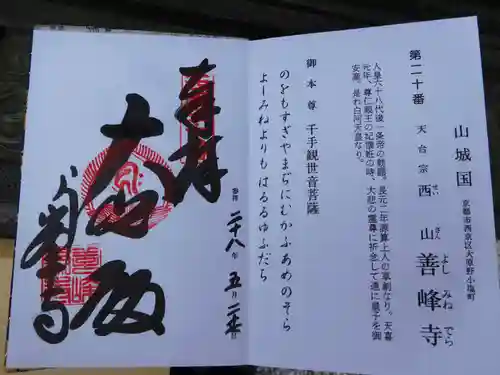 山城国
京都市西京区大原野小塩町
第二十番
天台宗
西山善峰寺
せい ざん よし みね でら
人皇六十八代後一条帝の勅願。長元二年源算上人の草創なり。天喜
元年、尊仁親王の妃懐妊の時、大悲の霊尊に祈念して遂に皇子を御
安産。是れ白河天皇なり。
御本尊 千手観世音菩薩
のをもすぎやまぢにむかふあめのそら
よしみねよりもはるるゆふだち
奉拝
大悲殿
善峯寺
平成二十八年五月二十七日